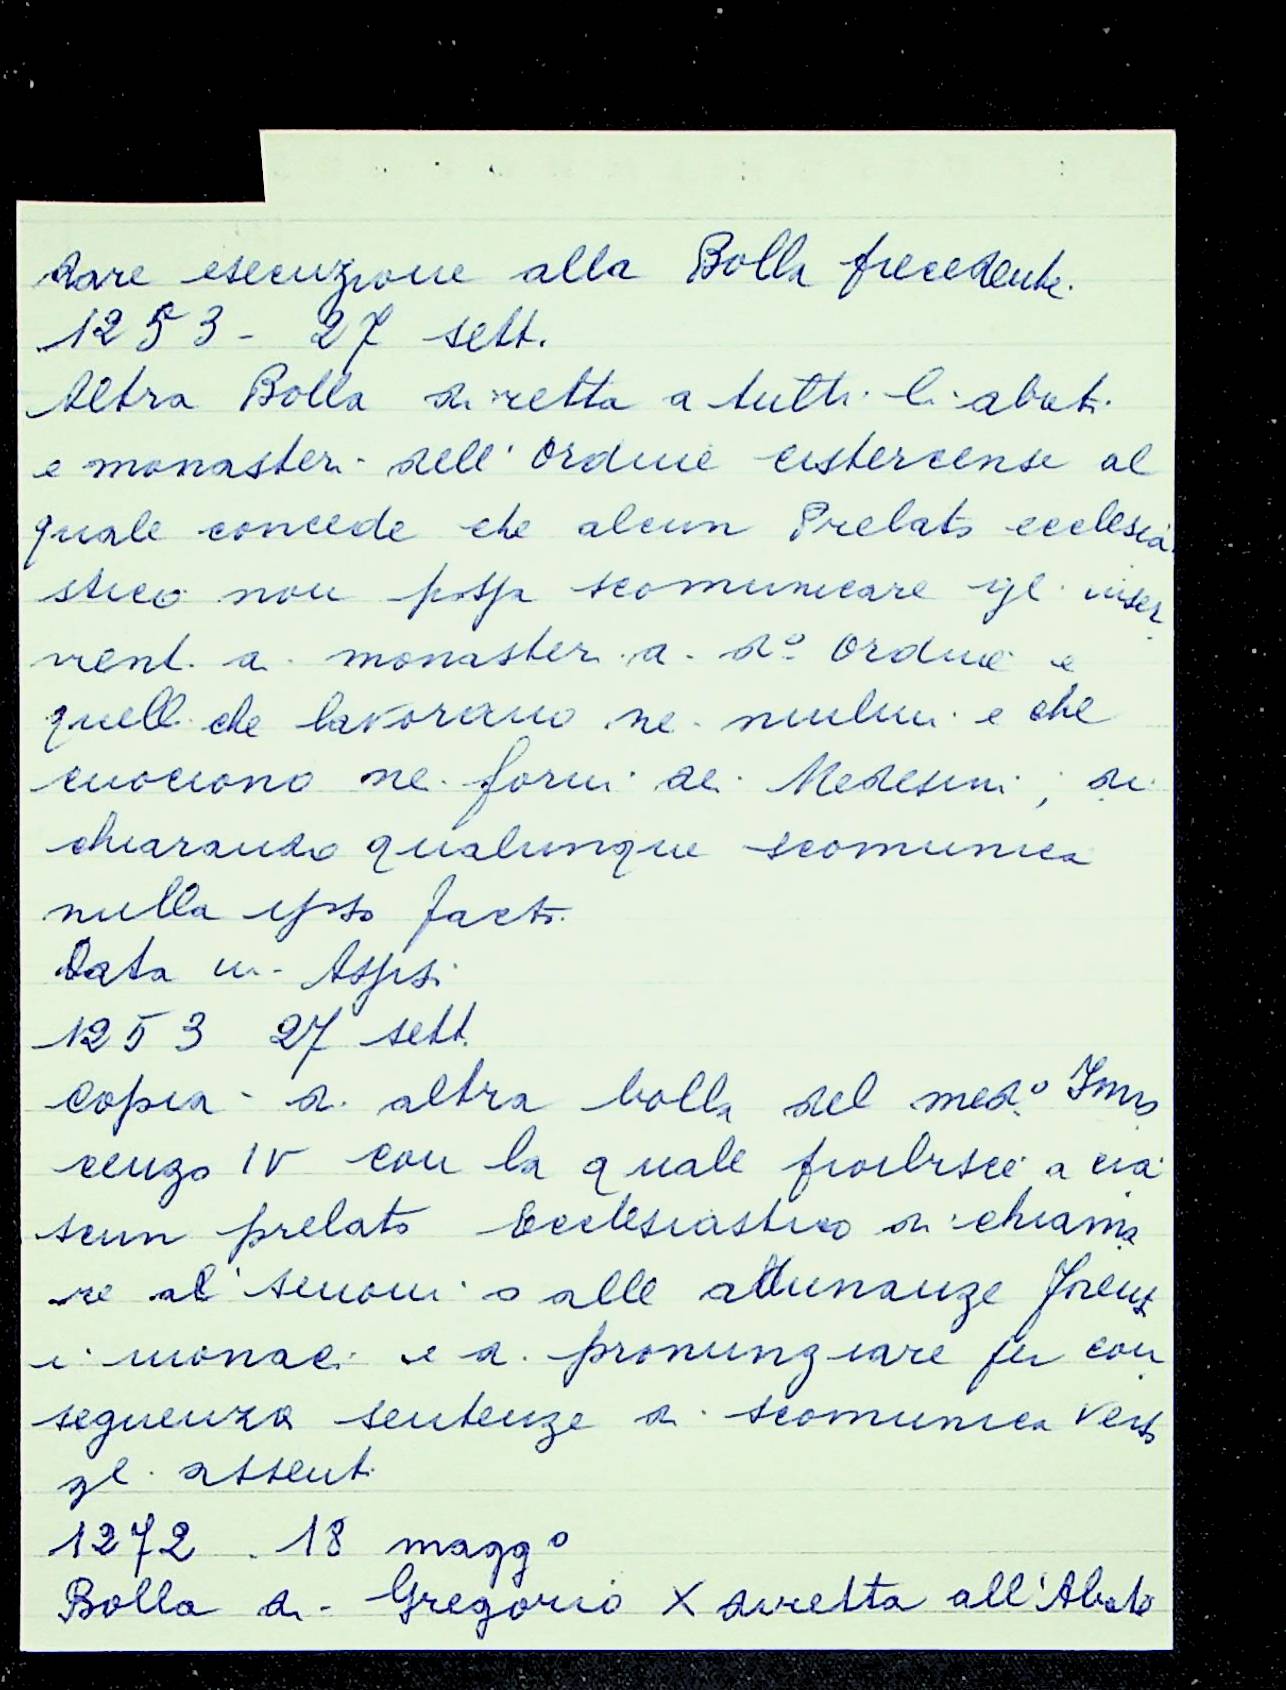 dare esecuzione alla Bolla precedente.
1253 - 27 sett.
Altra Bolla diretta a tutti li abati
e monasteri dell'Ordine cistercense al
quale concede che alcun Prelato ecclesia
stico non possa scomunicare gli inser
vienti ai monasteri di dº Ordine e
quelli che lavorano nei mulini e che
cuociono nei forni dei Medesimi, di
chiarando qualunque scomunica
nulla ipso facto.
Data in Assisi
1253 27 sett.
Copia di altra bolla del med.º Inno
cenzo IV con la quale proibisce a cia
scun prelato Ecclesiastico di chiama
re al sinodi o alle adunanze
i monaci e a pronunziare per con
seguenza sentenze di scomunica verso
gli assenti
1272 . 18 maggº
Bolla di Gregorio X diretta all'Abate